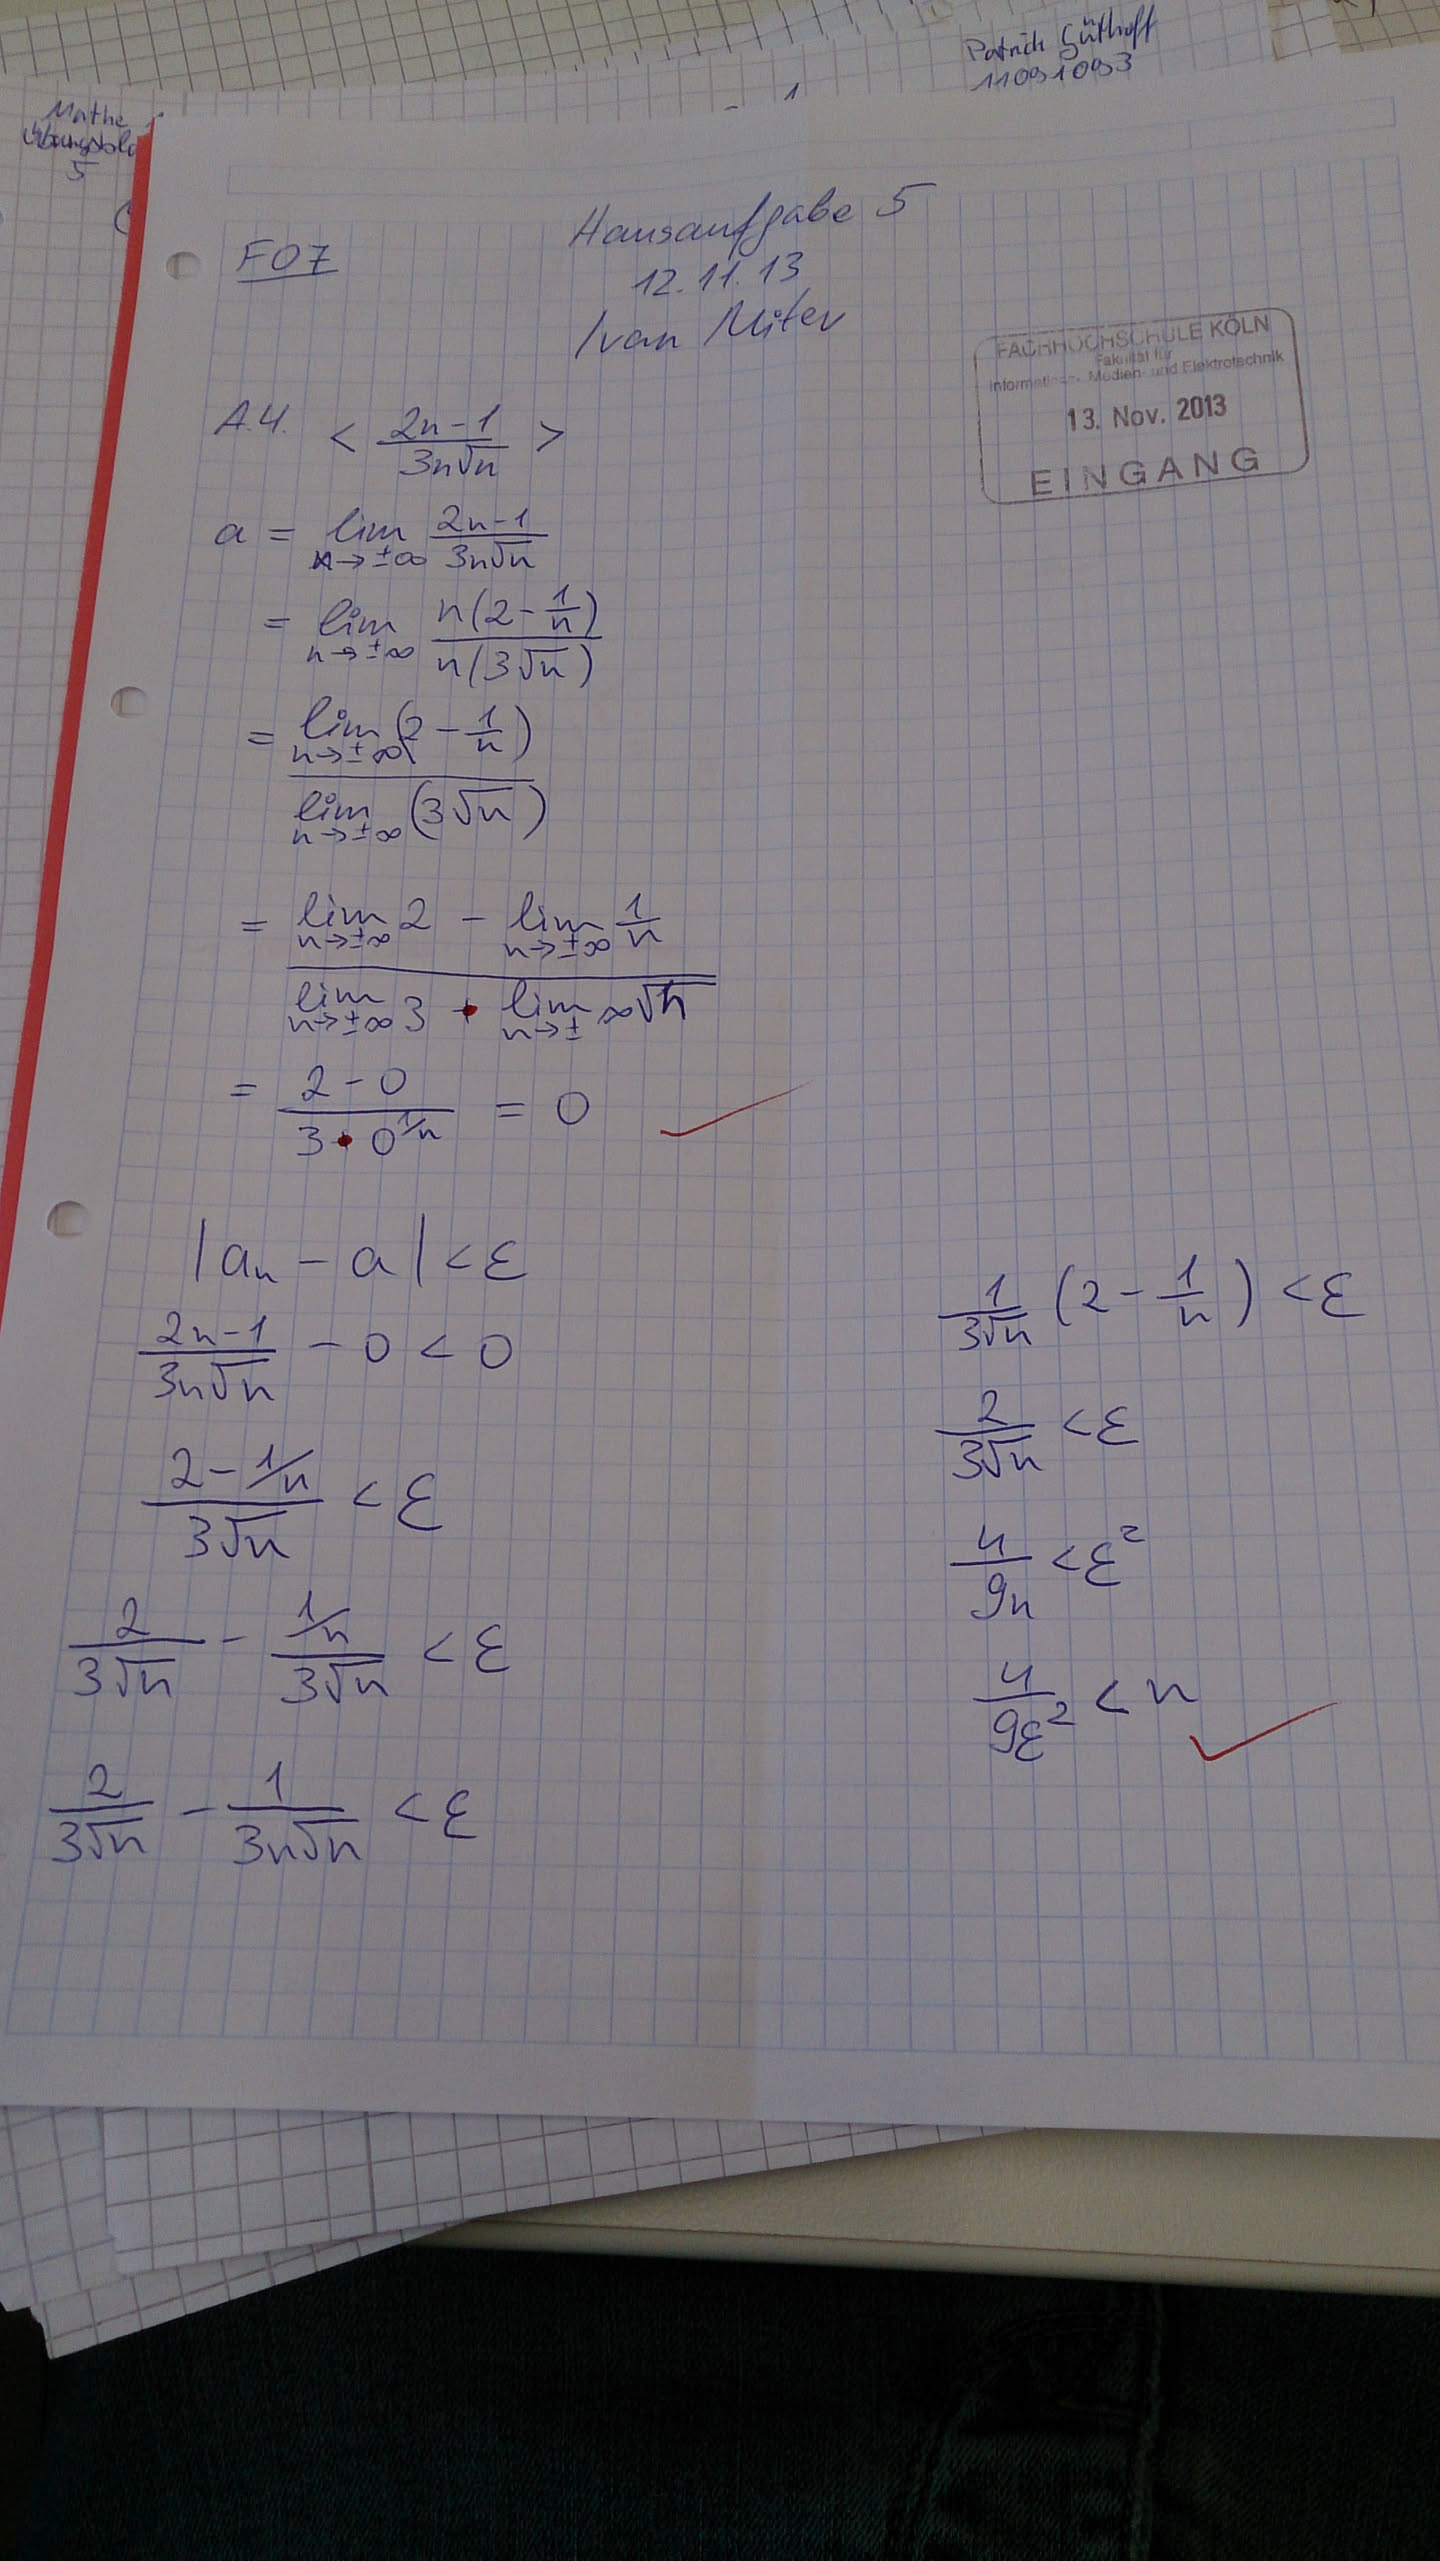 Patrick Güthoff
11091093
Mathe
5
Hausaufgabe 5
F07
12.11.13
Ivan Mitev
FACHHOCHSCHULE KÖLN
Fakultät für
Informations-, Medien- und Elektrotechnik
13. Nov. 2013
EINGANG
A.4. < (2n-1)/(3n√n) >
a = lim n→±∞ (2n-1)/(3n√n)
= lim n→±∞ n(2 - 1/n)/n(3√n)
= lim n→±∞ (2 - 1/n) / lim n→±∞ (3√n)
= lim n→±∞ 2 - lim n→±∞ 1/n / lim n→±∞ 3 • lim n→± ∞√n
= (2-0)/(3•0^1/n) = 0 ✓
|an - a| < ε
(2n-1)/(3n√n) - 0 < 0
(2 - 1/n)/(3√n) < ε
2/(3√n) - (1/n)/(3√n) < ε
2/(3√n) - 1/(3n√n) < ε
1/(3√n) (2 - 1/n) < ε
2/(3√n) < ε
4/9n < ε²
4/9ε² < n ✓